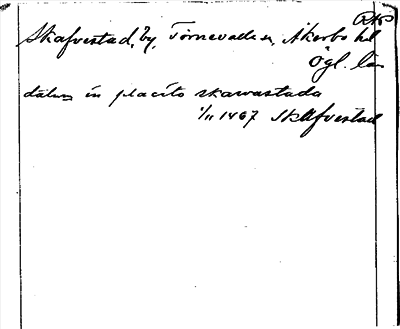 RAP
Skafvestad, by, Törnevalla sn, Åkerbo hd
Ögl. län
datum in placito skawastada
1/11 1467 Skafvestad